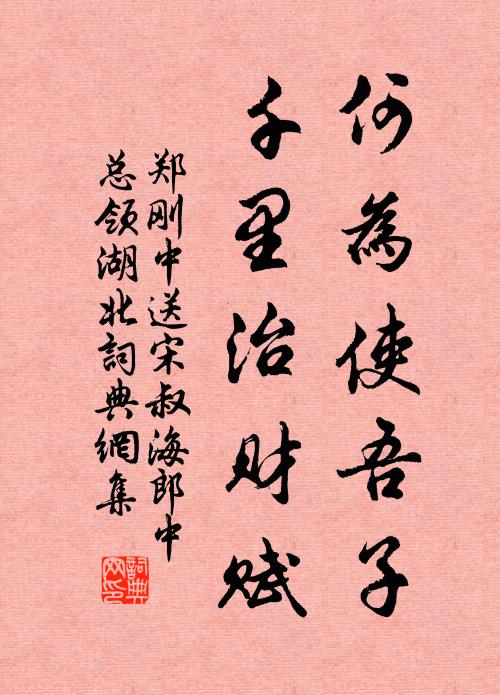 何為使吾子
千里治财赋
郑刚中送宋叔海郎中
总领湖北詞典網集
詞典
网印